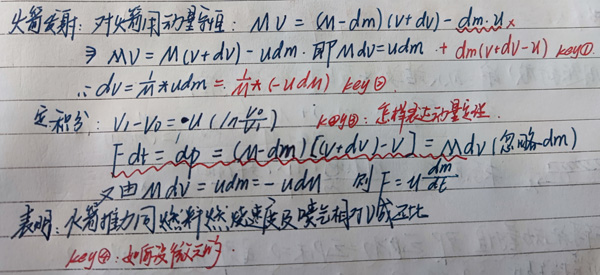 火箭发射: 对火箭用动量守恒: Mv = (M-dm)(v+dv) - dm·u ×
⇒ Mv = M(v+dv) - udm. 即Mdv=udm + dm(v+dv-u) key①.
∴ dv = 1/M * udm = 1/M * (-udM) key②.
定积分: V₁-V₀ = u(ln V₀/V₁) key③: 怎样表达动量定理.
Fdt = dp = (M-dm)[(v+dv)-v] = Mdv (忽略dm)
又由 Mdv = udm = -udM 则 F = u dm/dt
表明: 火箭推力同燃料燃烧速度及喷气相对v成正比
key④: 如何设微元的